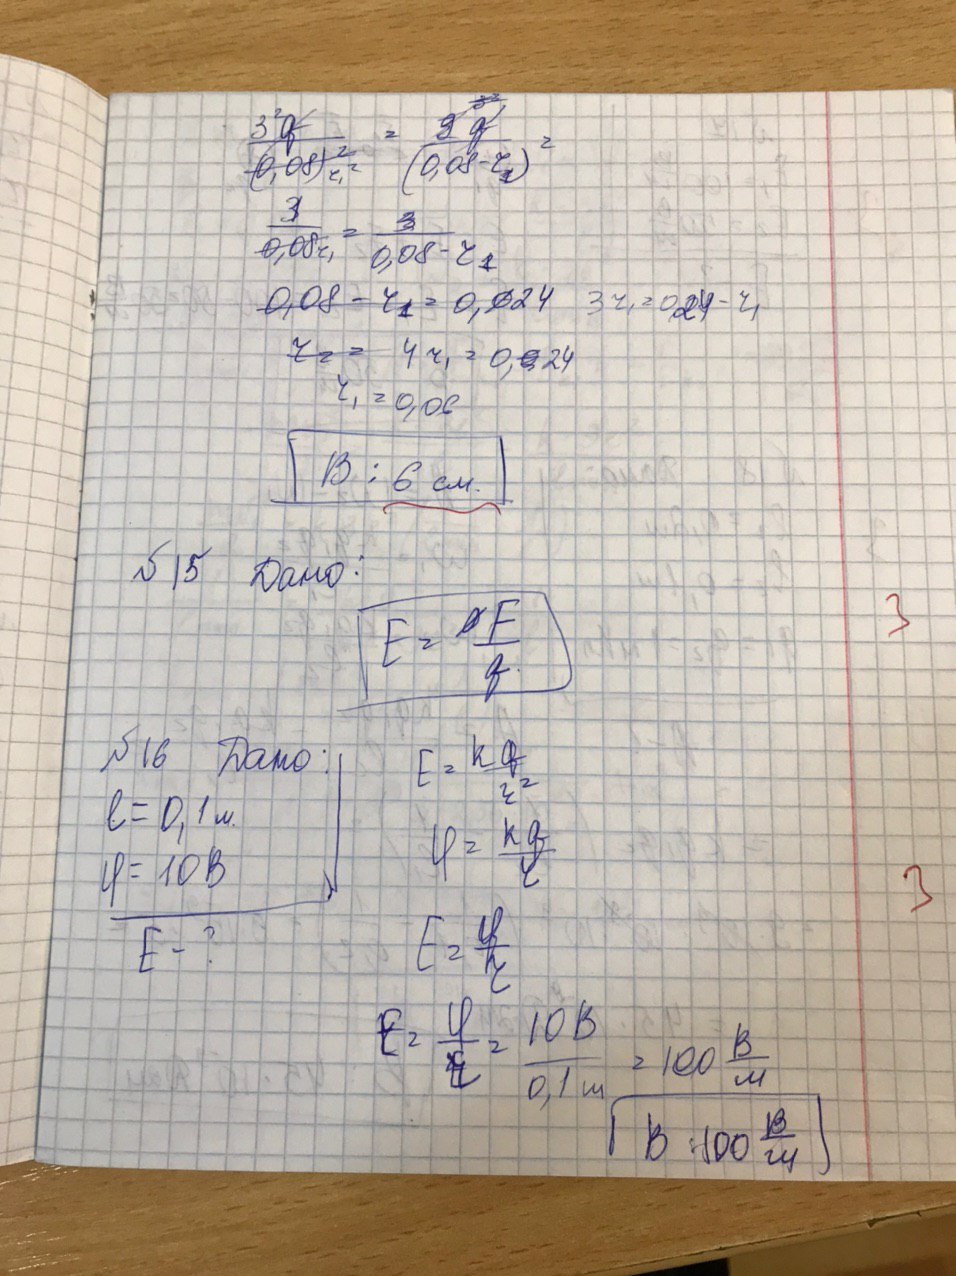 3²q / (0,08)² r₁² = 9q / (0,08 - r₁)² =
3 / 0,08 r₁ = 3 / 0,08 - r₁
0,08 - r₁ = 0,024 3r₁ = 0,24 - r₁
r₂ = 4r₁ = 0,24
r₁ = 0,06
В: 6 см.
№15 Дано:
E = F / q
3
№16 Дано:
E = kq / r²
l = 0,1 м.
φ = kq / r
φ = 10 В
3
E - ?
E = φ / r
E = φ / r = 10 В / 0,1 м = 100 В/м
В: 100 В/м